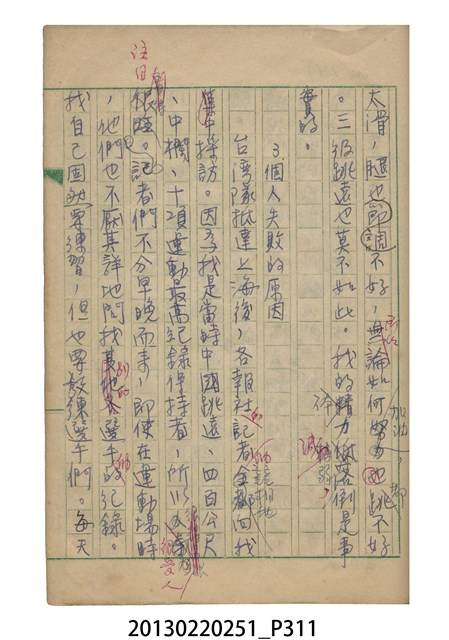 太滑，腿也節調不好，無論如何努力也跳不好
。三級跳遠也莫不如此。我的精力 落倒是事
實的。
3. 個人失敗的原因
台灣隊抵達上海後，各報社記者 都向我
集中採訪。因為我是當時中國跳遠、四百公尺
、中欄、十項運動最高紀錄保持者，所以
很受人
注目
。記者們不分早晚而來，即使在運動場時
，他們也不厭其詳地問我 選手的紀錄。
別的
找自己固然要練習，但也要教練選手們。每天
加油，都
減弱，
20130220251_P311